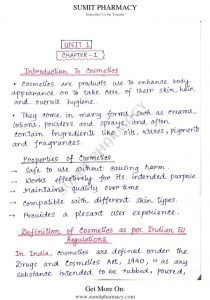 SUMIT PHARMACY
UNIT 1
CHAPTER-1
Introduction To Cosmetics
• Cosmetics are products use to enhance body
appearance on to take care of their skin, hair,
and overall hygiene.
• They come in many forms, such as creams,
lotions, powders and sprays, and often
contain ingredients like oils, waxes, pigments
and fragrances.
Properties of Cosmetics
→ Safe to use without causing harm
→ Works effectively for its intended purpose
→ Maintains quality over time
→ Compatible with different skin types.
→ Provides a plesant user experience.
Definition of Cosmetics as per Indian EU
Regulations
In India, cosmetics are defined under the
Drugs and Cosmetics Act, 1940, "as any
substance intended to be rubbed, poured,
Get More On:
www.sumitpharmacy.com